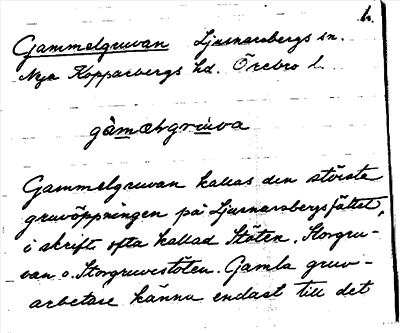 h.
Gammelgruvan Ljusnarsbergs sn.
Nya Kopparbergs hd. Örebro l.
gàməlgrùva
Gammelgruvan kallas den största
gruvöppningen på Ljusnarsbergsfältet,
i skrift ofta kallad Stöten, Storgru-
van o. Storgruvestöten. Gamla gruv-
arbetare känna endast till det